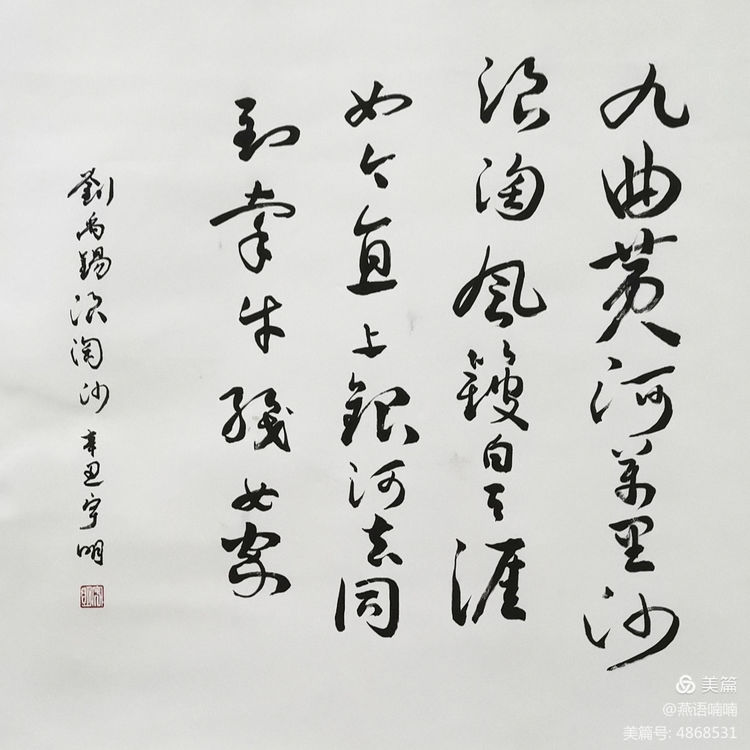 九曲黄河萬里沙
浪淘風簸自天涯
如今直上銀河去同
到牽牛織女家
劉禹錫浪淘沙 辛丑宇明
美篇
@燕语喃喃
美篇号: 4868531